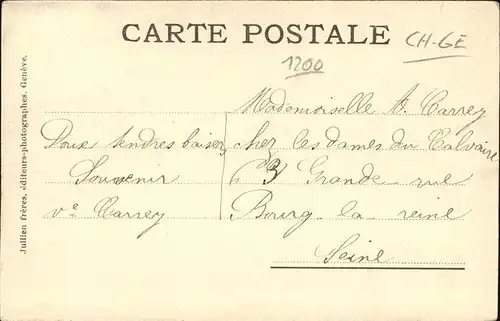 CARTE POSTALE
CH-GE
1200
Jullien frères, éditeurs-photographes. Genève.
Doux tendres baisers
Souvenir
ve Carrey
Mademoiselle A. Carrey
chez les dames du Calvaire
63 Grande rue
Bourg-la-reine
Seine